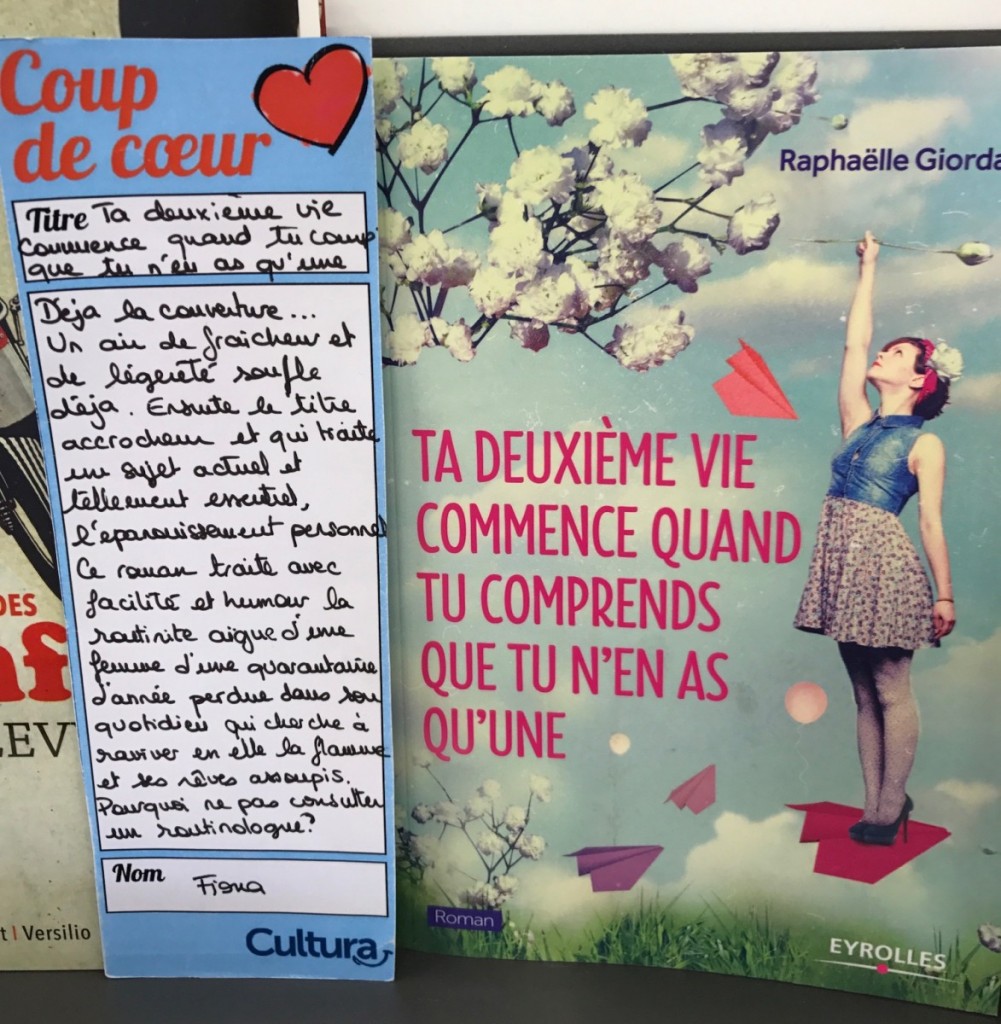 Coup
de cœur
Titre Ta deuxième vie
commence quand tu comp
que tu n'en as qu'une
Déja la couverture...
Un air de fraîcheur et
de légèreté souffle
déja. Ensuite le titre
accrocheur et qui traite
un sujet actuel et
tellement essentiel,
l'épanouissement personnel
Ce roman traite avec
facilité et humour la
routinite aigue d'une
femme d'une quarantaine
d'année perdue dans son
quotidien qui cherche à
raviver en elle la flamme
et ses rêves assoupis.
Pourquoi ne pas consulter
un routinologue?
Nom Fiona
Cultura
Raphaëlle Giorda
TA DEUXIÈME VIE
COMMENCE QUAND
TU COMPRENDS
QUE TU N'EN AS
QU'UNE
Roman
EYROLLES
DES
nf
LEV
t | Versilio